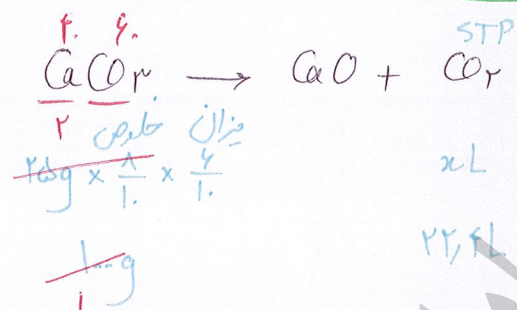 ۴۰ ۶۰ STP
CaCO۳ → CaO + CO۲
۲
خلوص میزان
۲۵g × ۸/۱۰ × ۶/۱۰ xL
۱۰۰g ۲۲,۴L
۱